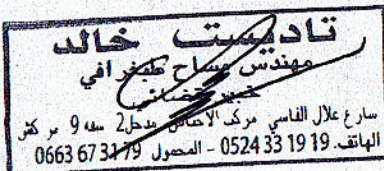 تاديست خالد
مهندس مساح طبغرافي
خبير قضائي
سارع علال الفاسي مركز الاحباس مدخل2 سقه 9 مر كش
الهاتف. 19 19 33 0524 - المحمول 79 31 67 0663